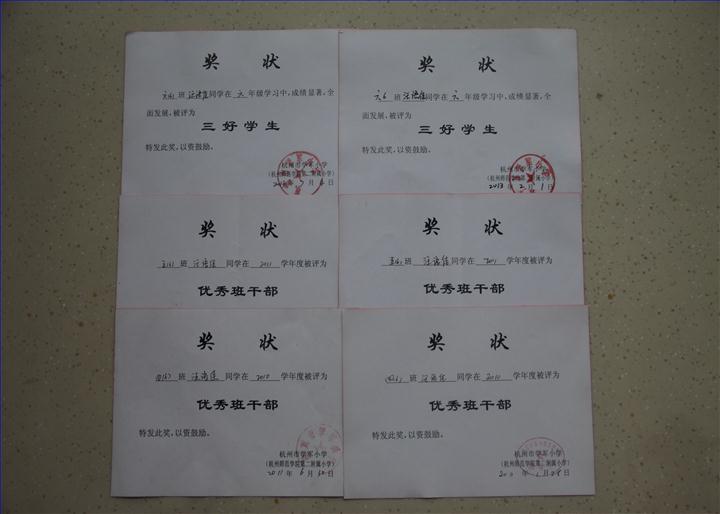 奖 状
六(6) 班 同学在 六 年级学习中,成绩显著,全
面发展,被评为
三好学生
特发此奖,以资鼓励。
杭州市学军小学
(杭州师范学院第二附属小学)
月 日
奖 状
六6 班 同学在 六 年级学习中,成绩显著,全
面发展,被评为
三好学生
特发此奖,以资鼓励。
杭州市学军小学
(杭州师范学院第二附属小学)
2013 年 2 月 1 日
奖 状
五(6) 班 同学在 2011 学年度被评为
优秀班干部
奖 状
五(6) 班 同学在 2011 学年度被评为
优秀班干部
奖 状
四(6) 班 同学在 2010 学年度被评为
优秀班干部
特发此奖,以资鼓励。
杭州市学军小学
(杭州师范学院第二附属小学)
2011 年 6 月 30 日
奖 状
四(6) 班 同学在 2010 学年度被评为
优秀班干部
特发此奖,以资鼓励。
杭州市学军小学
(杭州师范学院第二附属小学)
年 月 日